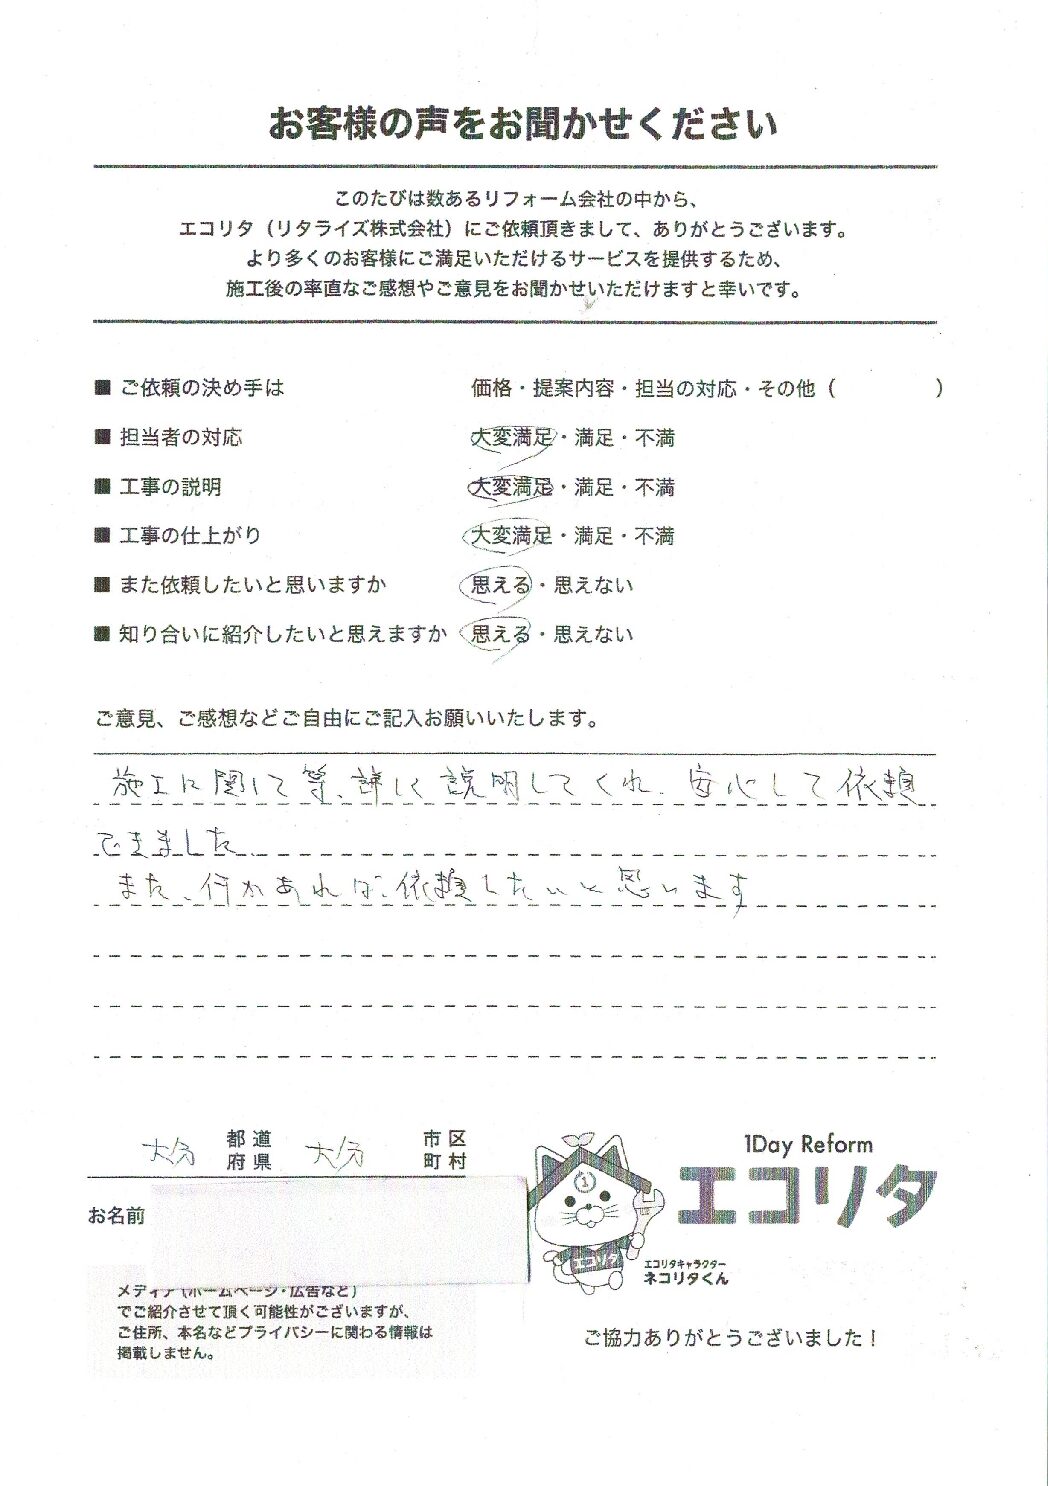 お客様の声をお聞かせください
このたびは数あるリフォーム会社の中から、
エコリタ（リタライズ株式会社）にご依頼頂きまして、ありがとうございます。
より多くのお客様にご満足いただけるサービスを提供するため、
施工後の率直なご感想やご意見をお聞かせいただけますと幸いです。
■ ご依頼の決め手は 価格・提案内容・担当の対応・その他（ ）
■ 担当者の対応 大変満足・満足・不満
■ 工事の説明 大変満足・満足・不満
■ 工事の仕上がり 大変満足・満足・不満
■ また依頼したいと思いますか 思える・思えない
■ 知り合いに紹介したいと思えますか 思える・思えない
ご意見、ご感想などご自由にご記入お願いいたします。
施工に関して等、詳しく説明してくれ、安心して依頼
できました。
また、何かあれば、依頼したいと思います
大分 都道府県 大分 市区町村
お名前
メディア（ホームページ・広告など）
でご紹介させて頂く可能性がございますが、
ご住所、本名などプライバシーに関わる情報は
掲載しません。
1Day Reform
エコリタ
1
エコリタ
エコリタキャラクター
ネコリタくん
ご協力ありがとうございました！